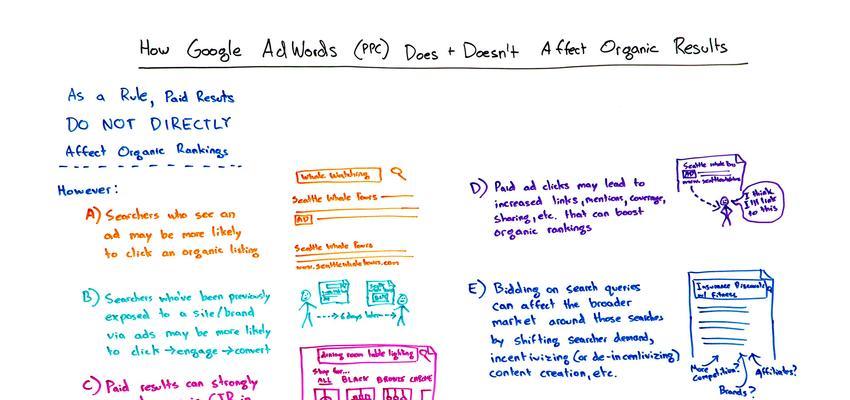 How Google AdWords (PPC) Does + Doesn't Affect Organic Results
As a Rule, Paid Resuts
DO NOT DIRECTLY
Affect Organic Rankings
However:
A) Searchers who see an
ad may be more likely
to click an organic listing
Whale Watching
Seattle Whale Tours
AD
Seattle Whale Tours
www.seattlewhaletours.com
B) Searchers who've been previously
exposed to a site/brand
via ads may be more likely
to click → engage → convert
6 days later
C) Paid results can strongly
CTR in
dining room table lighting
Shop for...
ALL BLACK BRONZE CHROME
D) Paid ad clicks may lead to
increased links, mentions, coverage,
sharing, etc. that can boost
organic rankings
Seattle Whale
AD
I think
I'll link
to this
E) Bidding on search queries
can affect the broader
market around those searches
by shifting searcher demand,
incentivizing (or de-incentivizing)
content creation, etc.
Insurance Discounts
w/ Fitness
More
Competition?
Brands?
Affiliates?